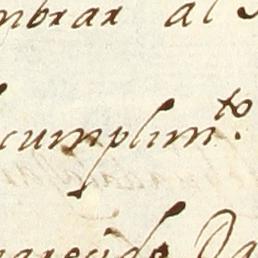 mbrar al
cumplim.to
parecido Da